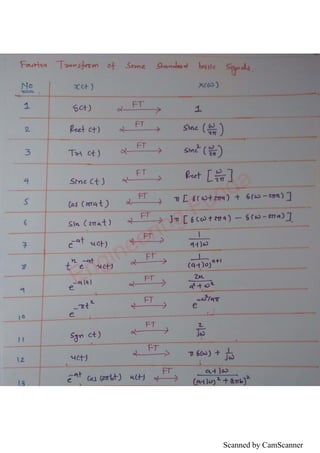 Fourier Transform of Some Standard basic Signals
No x(t) X(ω)
1 δ(t) FT 1
2 Rect (t) FT Sinc (ω/2π)
3 Tri (t) FT Sinc² (ω/2π)
4 Sinc (t) FT Rect [ω/2π]
5 Cos (2πat) FT π [δ(ω+2πa) + δ(ω-2πa)]
6 Sin (2πat) FT jπ [δ(ω+2πa) - δ(ω-2πa)]
7 e^-at u(t) FT 1/(a+jω)
8 t^n e^-at u(t) FT 1/(a+jω)^n+1
9 e^-a|t| FT 2a/(a²+ω²)
10 e^-πt² FT e^-ω²/4π
11 Sgn (t) FT 2/jω
12 u(t) FT π δ(ω) + 1/jω
13 e^-at Cos (2πbt) u(t) FT (a+jω)/((a+jω)² + (2πb)²)
Scanned by CamScanner